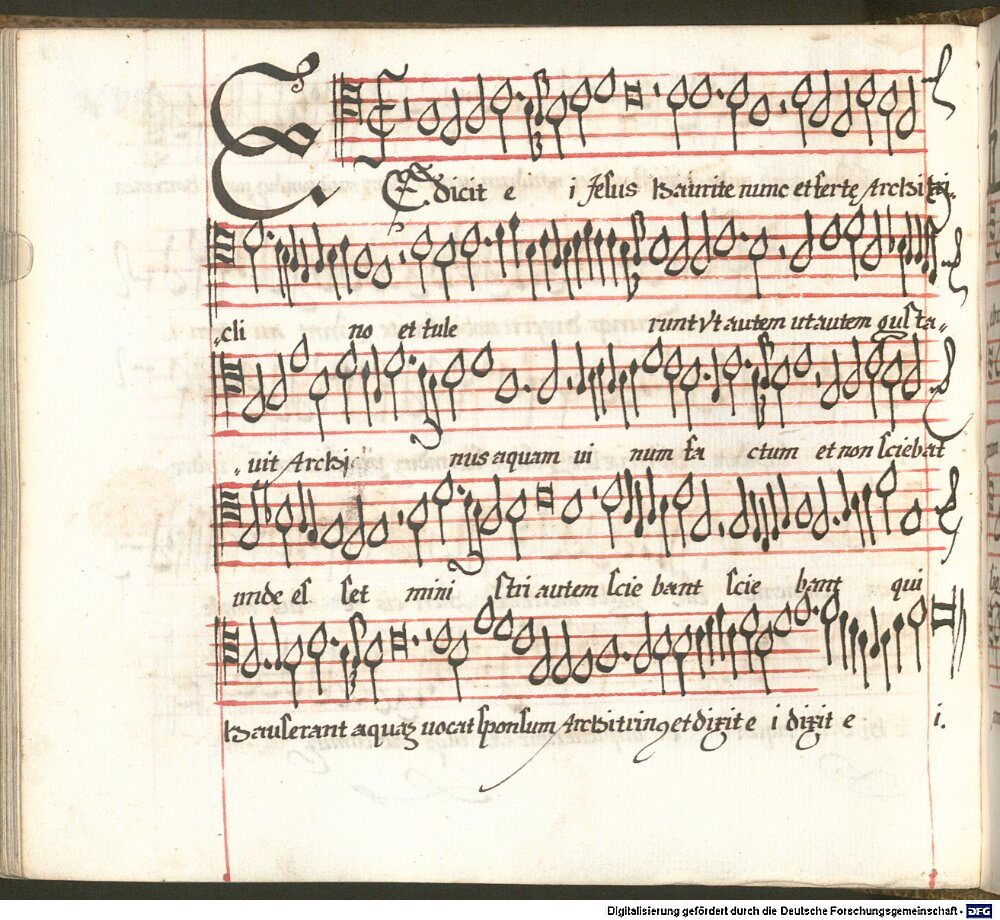 Et dicit e i Jesus Haurite nunc et ferte Archi tri„
„cli no et tule runt Vt autem ut autem gusta„
„uit Archi nus aquam ui num fa ctum et non sciebat
unde es set mini stri autem scie bant scie bant qui
Hauserant aquaz uocat sponsum Architrin9 et dixit e i dixit e i.
3
3
3
3
Digitalisierung gefördert durch die Deutsche Forschungsgemeinschaft - DFG